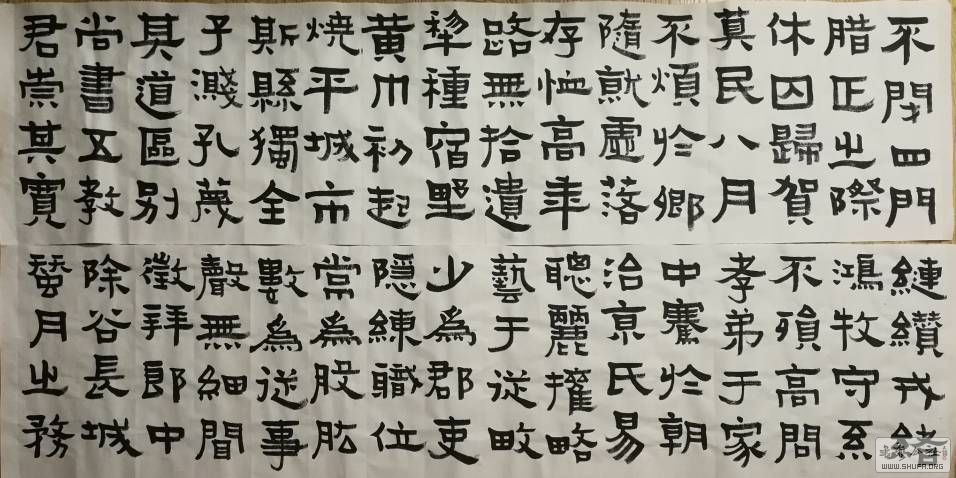 不閉四門
腊正之際
休囚歸賀
筭民八月
不煩於鄉
隨就虛落
存恤高年
路無拾遺
犂種宿野
黃巾初起
燒平城市
斯縣獨全
子濺孔蔑
其道區別
尚書五教
君崇其寬
縺纘戎緒
鴻牧守系
不殞高問
孝弟于家
中騫於朝
治京氏易
聰麗權略
藝于從畋
少為郡吏
隱練職位
常為股肱
數為從事
聲無細間
徵拜郎中
除谷長城
蚕月之務
WWW.SHUFA.ORG